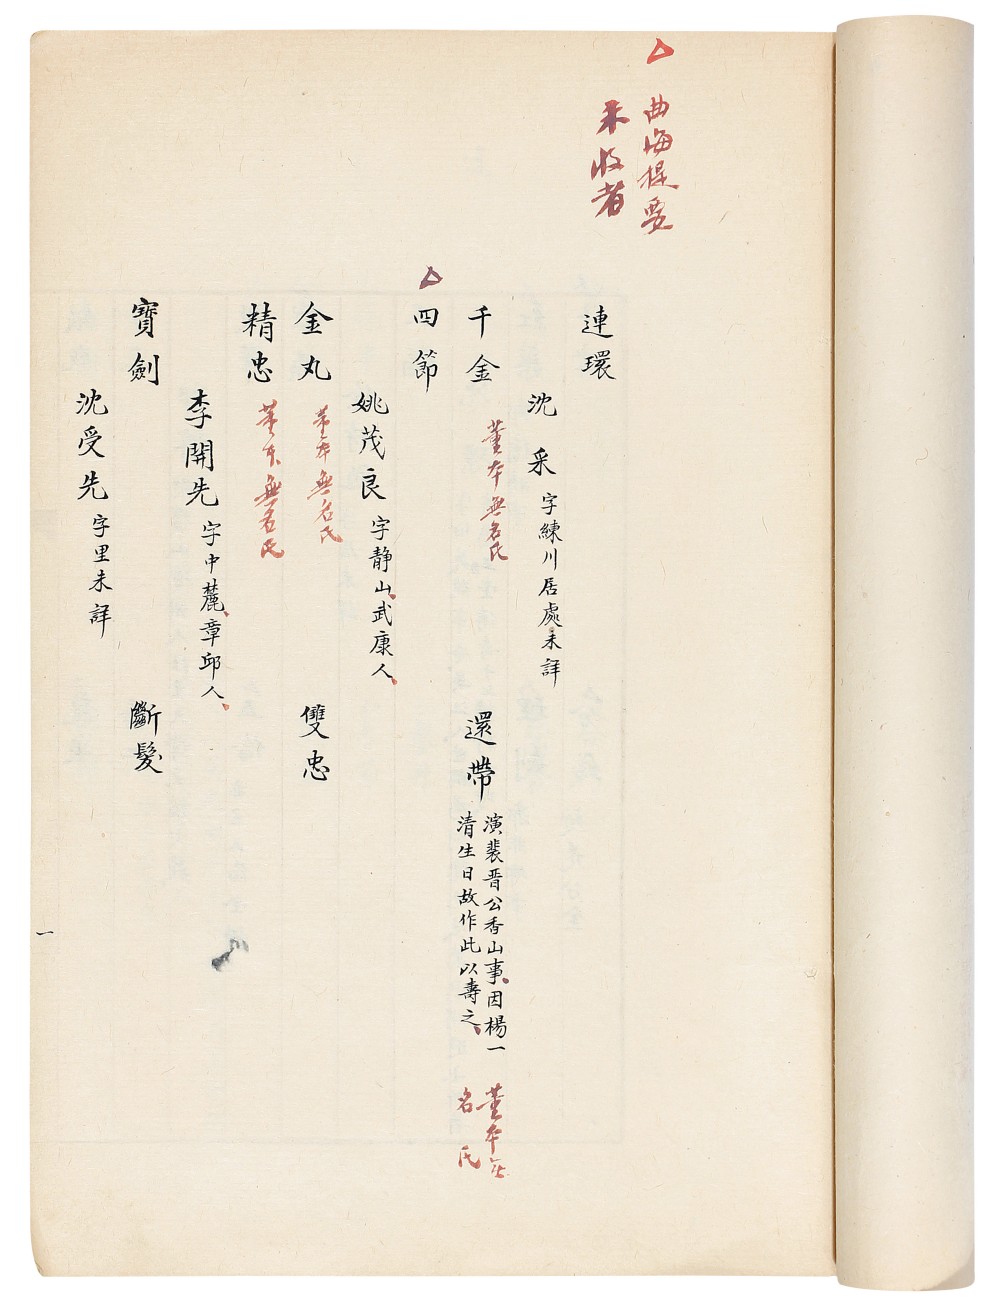 △曲海提要
未收者
連環
沈采 字練川居處未詳
千金 董本無名氏 還帶 演裴晋公香山事、因楊一
清生日故作此以壽之、 董本無
名氏
△四節
姚茂良 字静山、武康人、
金丸 董本無名氏 雙忠
精忠 董本無名氏
李開先 字中麓、章邱人、
寶劍 斷髮
沈受先 字里未詳
一